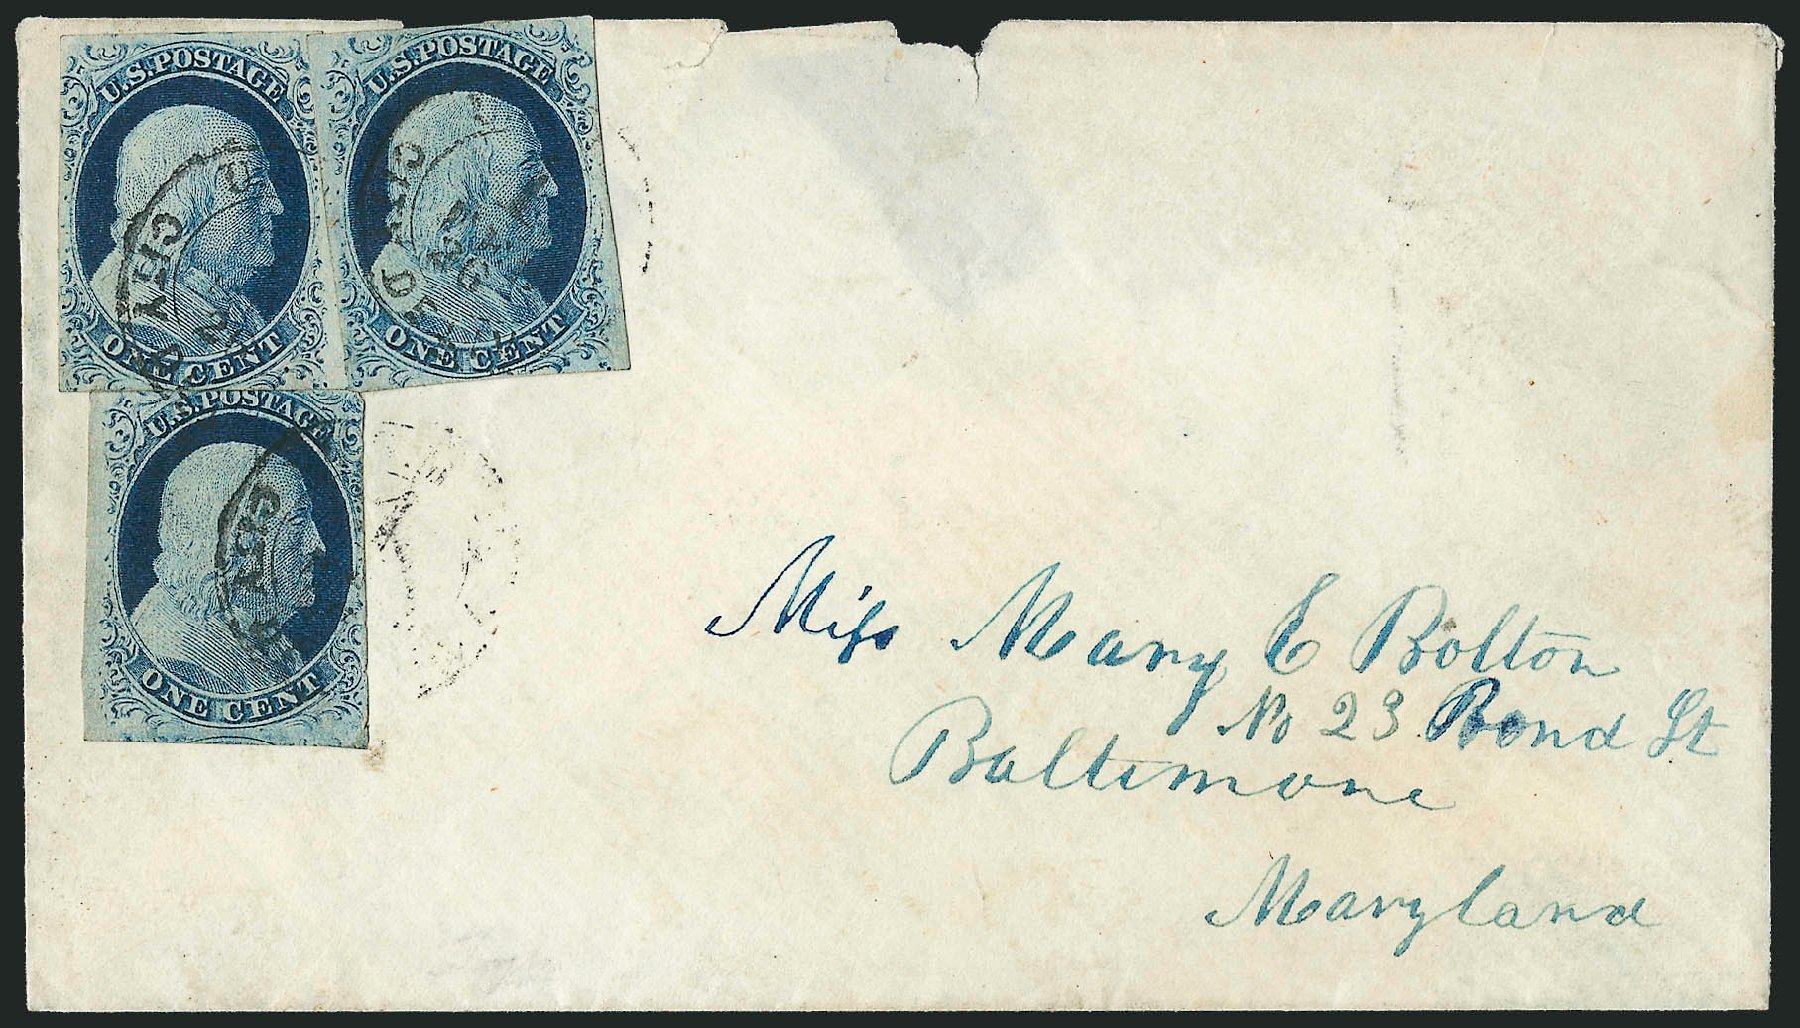 U.S. POSTAGE
ONE CENT
U.S. POSTAGE
ONE CENT
U.S. POSTAGE
ONE CENT
CITY
CITY
Miss Mary E Bolton
No 23 Bond St
Baltimore
Maryland